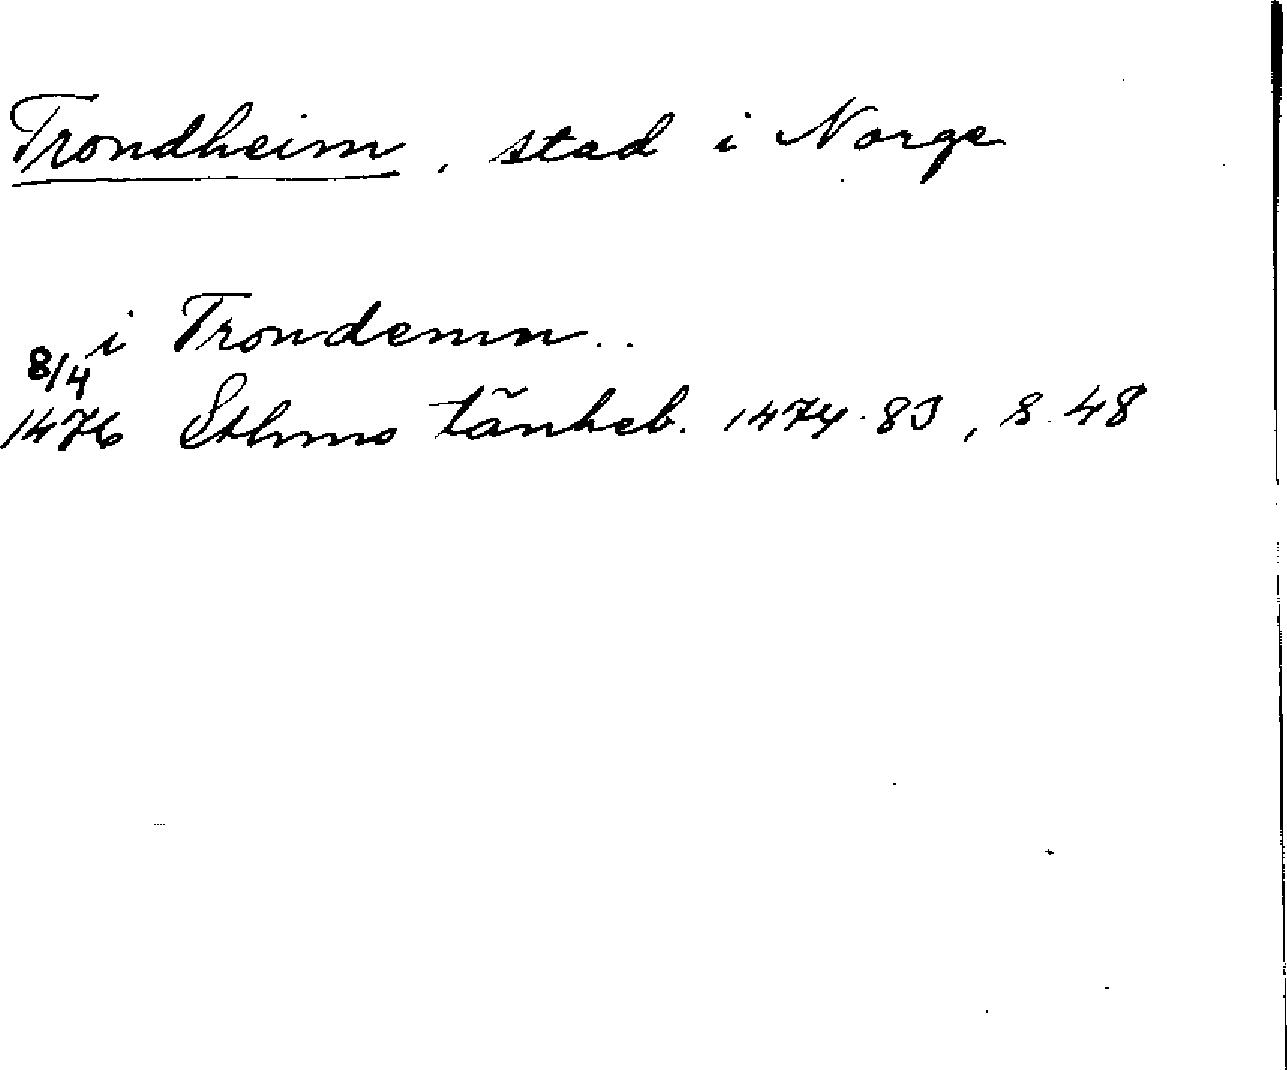 Trondheim, stad i Norge
i Trondemn..
8/4
1476 Sthms tänkeb. 1474-83, s. 48